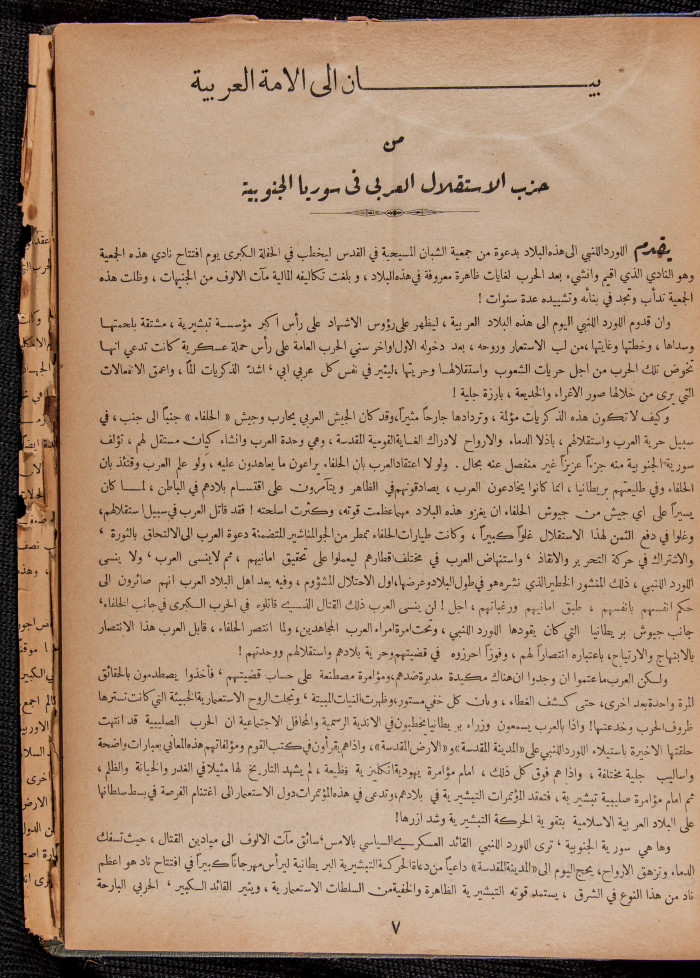 بيـــــــــان الى الامة العربية
من
حزب الاستقلال العربي في سوريا الجنوبية
يقدم اللورد اللنبي الى هذه البلاد بدعوة من جمعية الشبان المسيحية في القدس ليخطب في الحفلة الكبرى يوم افتتاح نادي هذه الجمعية
وهو النادي الذي اقيم وانشيء بعد الحرب لغايات ظاهرة معروفة في هذه البلاد ، و بلغت تكاليفه المالية مآت الالوف من الجنيهات ، وظلت هذه
الجمعية تدأب وتجد في بنائه وتشييده عدة سنوات !
وان قدوم اللورد اللنبي اليوم الى هذه البلاد العربية ، ليظهر على رؤوس الاشهاد على رأس اكبر مؤسسة تبشيرية ، مشتقة بلحمتها
وسداها ، وخطتها وغايتها ،من لب الاستعمار وروحه ، بعد دخوله الاول اواخر سني الحرب العامة على رأس حملة عسكرية كانت تدعي انها
تخوض تلك الحرب من اجل حريات الشعوب واستقلالها وحريتها ،ليثير في نفس كل عربي ابي ، اشد الذكريات المًا ، واعمق الانفعالات
التي يرى من خلالها صور الاغراء والخديعة ، بارزة جلية !
وكيف لا تكون هذه الذكريات مؤلمة ، وتردادها جارحاً مثيراً، وقد كان الجيش العربي يحارب وجيش « الحلفاء » جنباً الى جنب ، في
سبيل حرية العرب واستقلالهم ، باذلا الدماء والارواح لادراك الغاية القومية المقدسة ، وهي وحدة العرب وانشاء كيان مستقل لهم ، تؤلف
سورية الجنوبية منه جزءاً عزيزاً غير منفصل عنه بحال . ولولا اعتقاد العرب بان الحلفاء يراعون ما يعاهدون عليه ، ولو علم العرب وقتئذ بان
الحلفاء وفي طليعتهم بريطانيا ، انما كانوا يخادعون العرب ، يصادقونهم في الظاهر ويتآمرون على اقتسام بلادهم في الباطن ، لما كان
يسيراً على اي جيش من جيوش الحلفاء ان يغزو هذه البلاد مهما عظمت قوته، وكثرت اسلحته ! فقد قاتل العرب في سبيل استقلالهم،
وغلوا في دفع الثمن لهذا الاستقلال غلواً كبيراً ، وكانت طيارات الحلفاء تمطر من الجو المناشير المتضمنة دعوة العرب الى الالتحاق بالثورة ،
والاشتراك في حركة التحرير والانقاذ ، واستنهاض العرب في مختلف اقطارهم ليعملوا على تحقيق امانيهم ، ثم لا ينسى العرب ، ولا ينسى
اللورد اللنبي ، ذلك المنشور الخطير الذي نشره هو في طول البلاد وعرضها، اول الاحتلال المشؤوم ، وفيه يعد اهل البلاد العرب انهم صائرون الى
حكم انفسهم بانفسهم ، طبق امانيهم ورغباتهم ، اجل ! لن ينسى العرب ذلك القتال الذي قاتلوه في الحرب الكبرى في جانب الحلفاء،
جانب جيوش بريطانيا التي كان يقودها اللورد اللنبي ، وتحت امرة امراء العرب المجاهدين، ولما انتصر الحلفاء ، قابل العرب هذا الانتصار
بالابتهاج والارتياح، باعتباره انتصاراً لهم ، وفوزاً احرزوه في قضيتهم وحرية بلادهم واستقلالهم ووحدتهم !
ولكن العرب ما عتموا ان وجدوا ان هناك مكيدة مدبرة ضدهم، ومؤامرة مصطنعة على حساب قضيتهم ، فأخذوا يصطدمون بالحقائق
المرة واحدة بعد اخرى، حتى كشف الغطاء ، وبان كل خفي مستور، وظهرت النيات المبيتة ، وتجلت الروح الاستعمارية الخبيثة التي كانت تسترها
ظروف الحرب وخدعتها! واذا بالعرب يسمعون وزراء بريطانيا يخطبون في الاندية الرسمية والمحافل الاجتماعية ان الحرب الصليبية قد انتهت
حلقتها الاخيرة باستيلاء اللورد اللنبي على «المدينة المقدسة» و «الارض المقدسة»، واذا هم يقرأون في كتب القوم ومؤلفاتهم هذه المعاني بعبارات واضحة
واساليب جلية مختلفة ، واذا هم فوق كل ذلك ، امام مؤامرة يهودية انكليزية فظيعة ، لم يشهد التاريخ لها مثيلا في الغدر والخيانة والظلم ،
ثم امام مؤامرة صليبية تبشيرية ، فتعقد المؤتمرات التبشيرية في بلادهم، وتدعى في هذه المؤتمرات دول الاستعمار الى اغتنام الفرصة في بسط سلطانها
على البلاد العربية الاسلامية بتقوية الحركة التبشيرية وشد ازرها!
وها هي سورية الجنوبية ، ترى اللورد اللنبي القائد العسكري السياسي بالامس ، سائق مآت الالوف الى ميادين القتال ، حيث تسفك
الدماء وتزهق الارواح، يحج اليوم الى «المدينة المقدسة» داعياً من دعاة الحركة التبشيرية البريطانية ليرأس مهرجاناً كبيراً في افتتاح ناد هو اعظم
ناد من هذا النوع في الشرق ، يستمد قوته التبشيرية الظاهرة والخفية من السلطات الاستعمارية ، ويثير القائد الكبير ، الحربي البارحة
٧